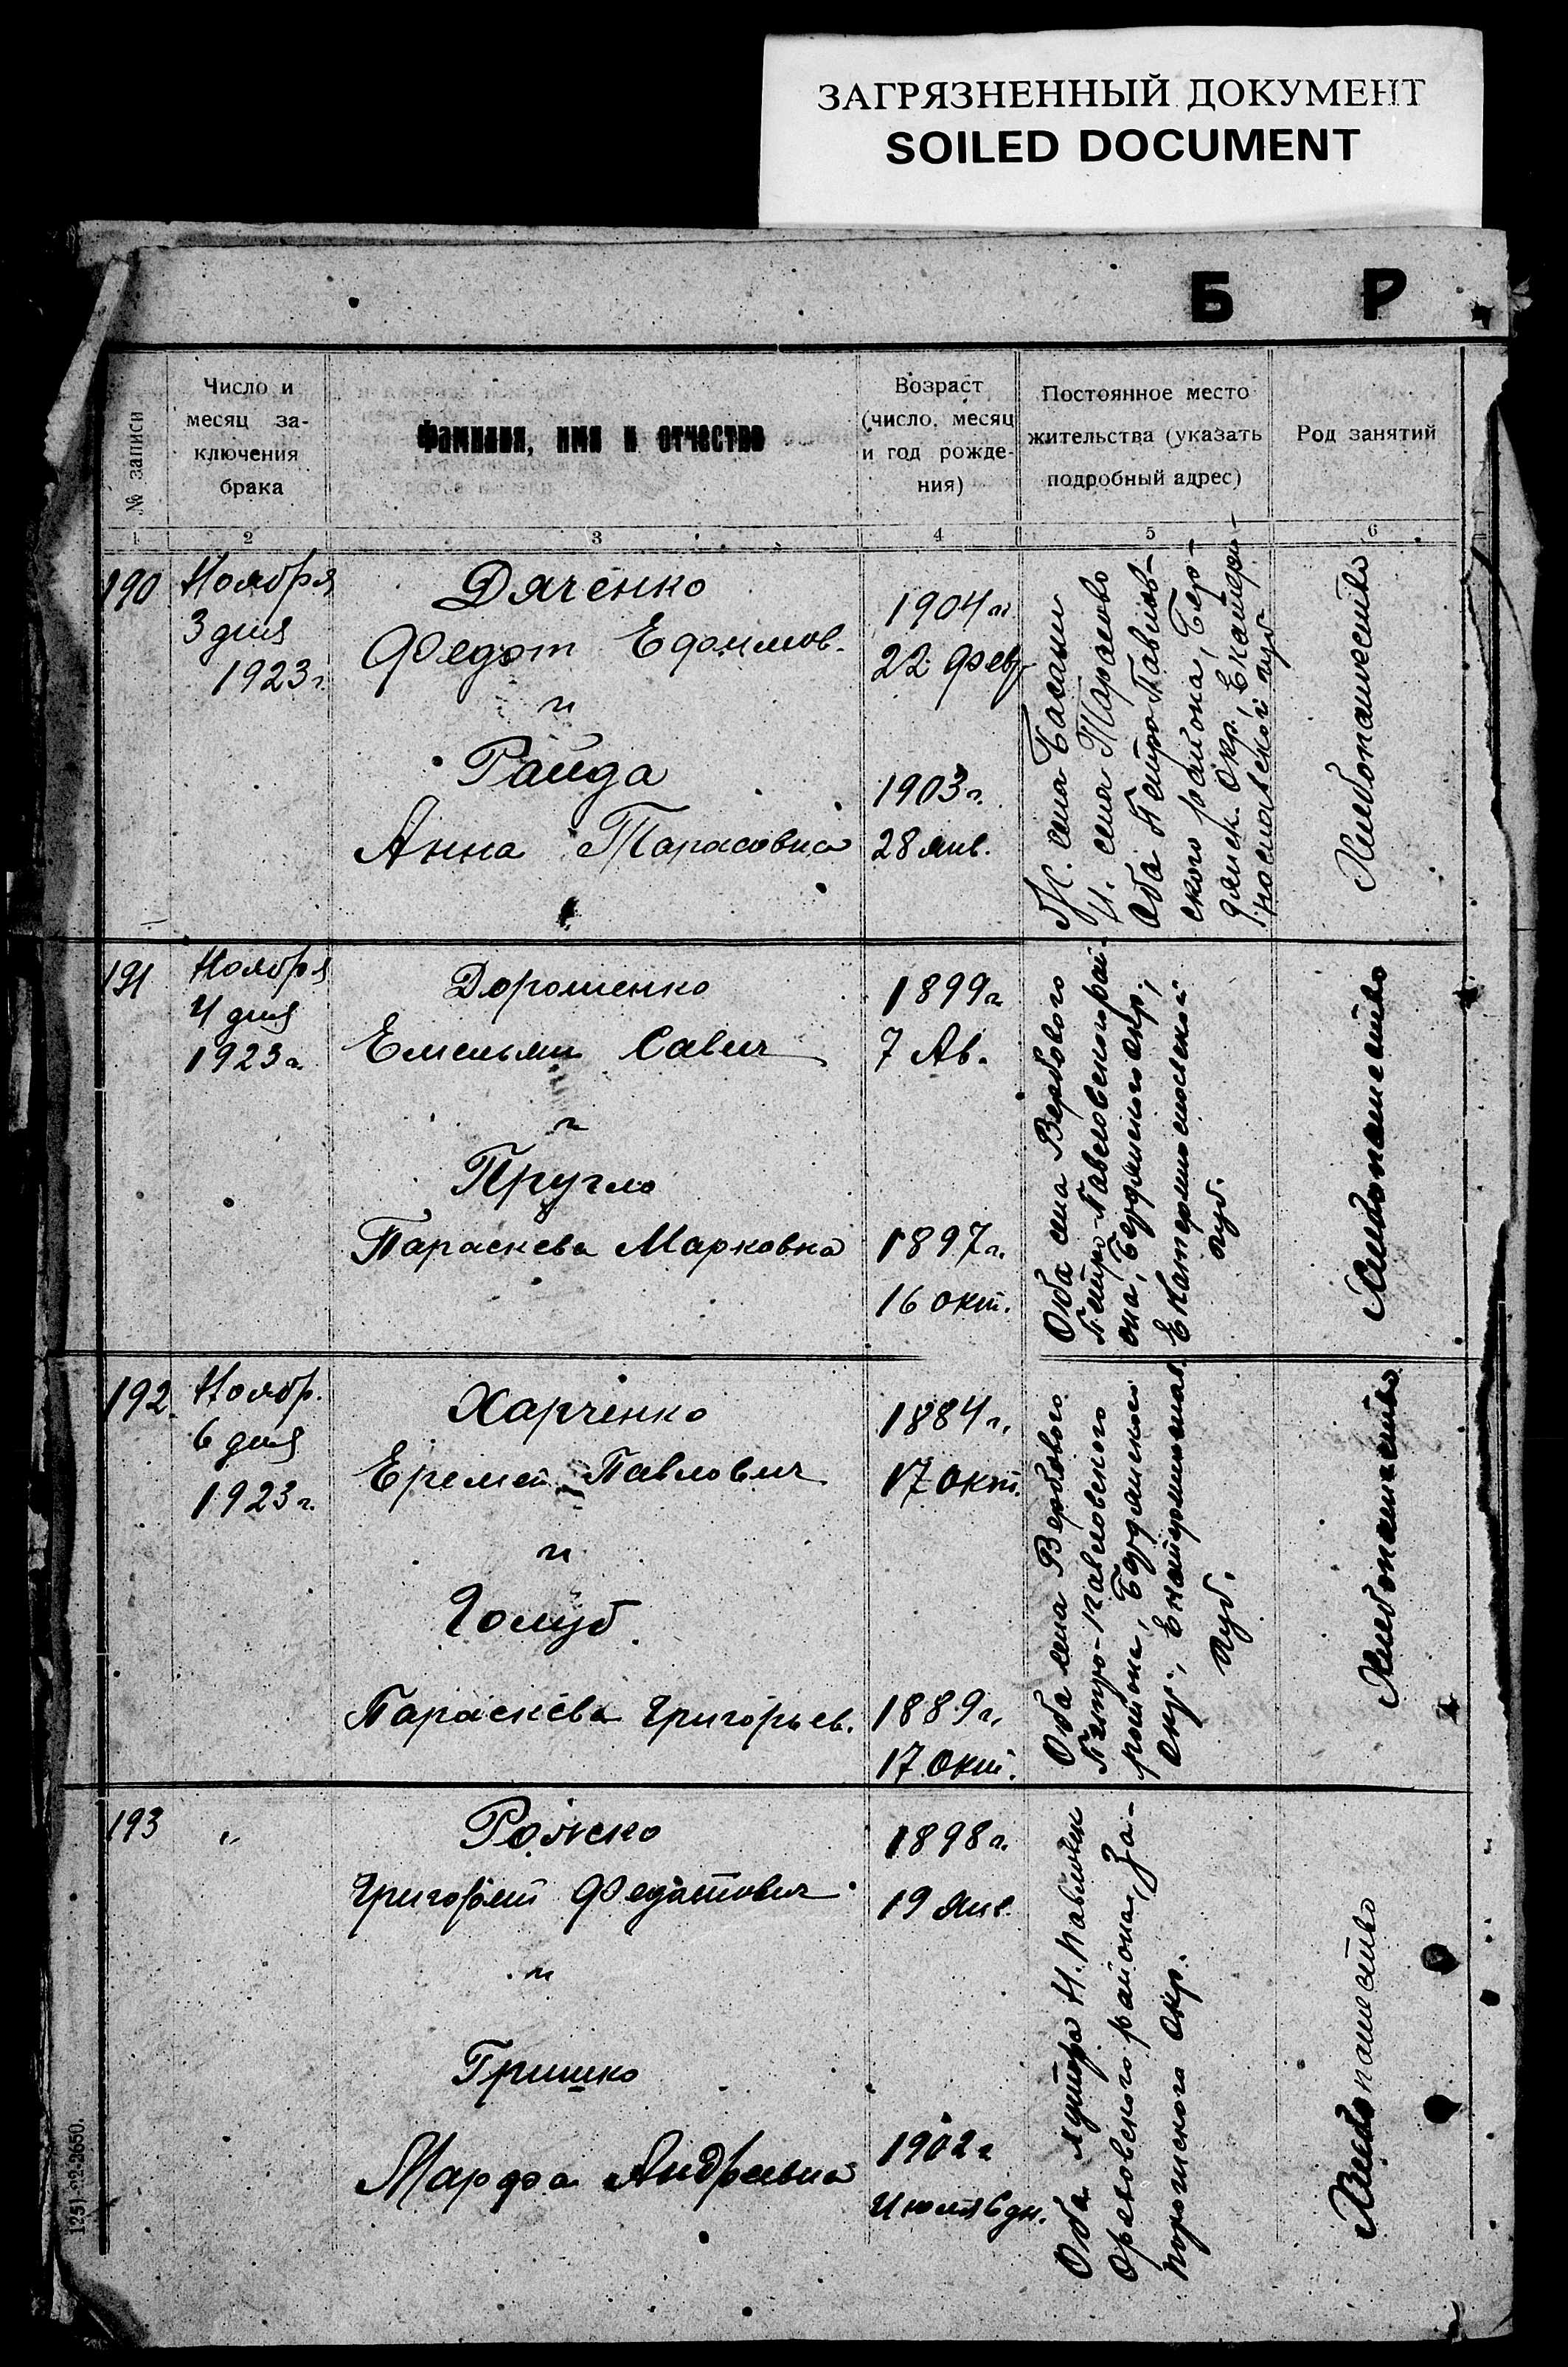 ЗАГРЯЗНЕННЫЙ ДОКУМЕНТ
SOILED DOCUMENT
Б Р
№ записи
Число и
месяц за-
ключения
брака
Фамилия, имя и отчество
Возраст
(число, месяц
и год рожде-
ния)
Постоянное место
жительства (указать
подробный адрес)
Род занятий
1 2 3 4 5 6
190
Ноября
3 дня
1923 г.
Дяченко
Федот Ефимов.
и
Райда
Анна Тарасовна
1904 г.
22 февр.
1903 г.
28 янв.
Гр. села Басани
и села Тарасово
Оба Петро Павлов-
ского района, Бер-
дянск. Окр., Екатери-
нославской губ.
Хлебопашество
191
Ноября
4 дня
1923 г.
Дорошенко
Емельян Савич
и
Пругло
Параскева Марковна
1899 г.
7 Ав.
1897 г.
16 окт.
Оба села Вербового
Петро-Павловского рай-
она, Бердянского окр.,
Екатеринославской
губ.
Хлебопашество
192.
Ноябр.
6 дня
1923 г.
Харченко
Еремей Павлович
и
Голуб
Параскева Григорьев.
1884 г.
17 окт.
1889 г.
17 Окт.
Оба села Вербового
Петро-Павловского
района, Бердянского
Окр., Екатеринослав.
губ.
Хлебопашество
193
"
Рожко
Григорий Федотович
и
Гришко
Марфа Андреевна
1898 г.
19 Янв.
1902 г
Июля 6 дн.
Оба хутора Н. Павловки
Ореховского района, За-
порожского окр.
Хлебопашество
1251-22-2650.